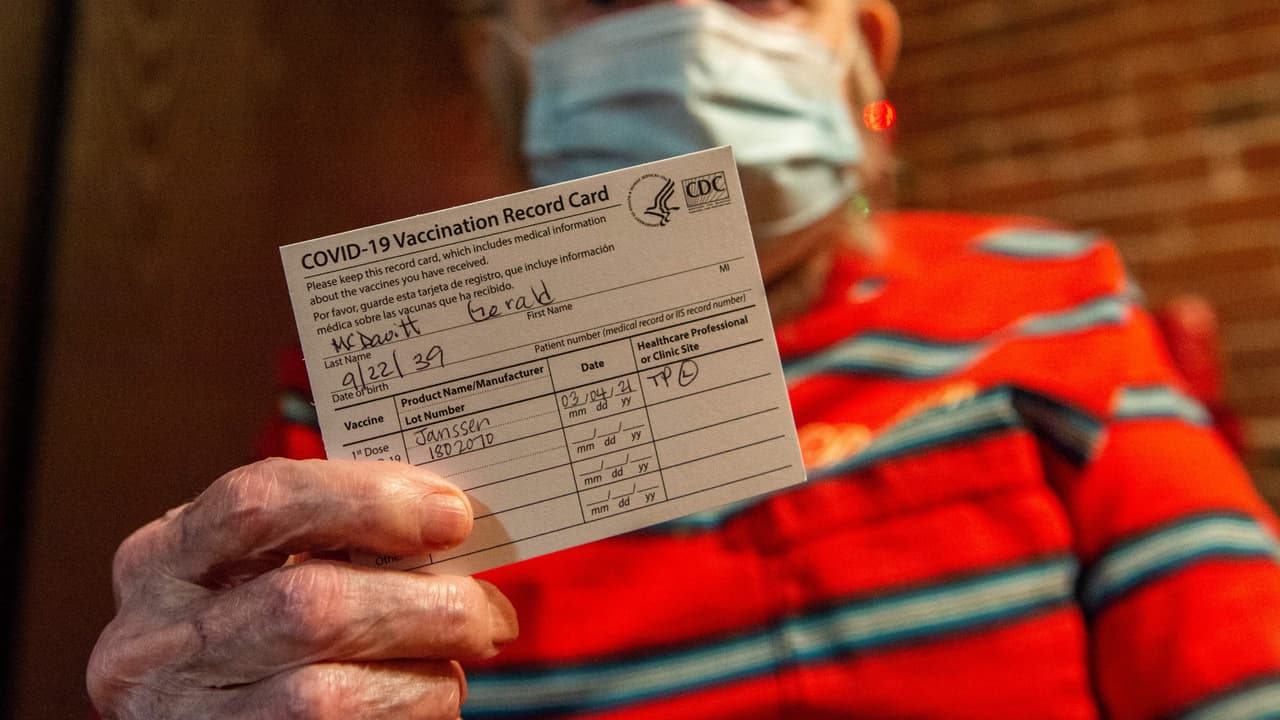 COVID-19 Vaccination Record Card
CDC
Please keep this record card, which includes medical information
about the vaccines you have received.
Por favor, guarde esta tarjeta de registro, que incluye información
médica sobre las vacunas que ha recibido.
McDavitt Gerald
Last Name First Name MI
9/22/39
Date of birth Patient number (medical record or IIS record number)
Vaccine Product Name/Manufacturer Date Healthcare Professional
Lot Number or Clinic Site
1st Dose Janssen 03/04/21 TP L
1802070 mm dd yy
mm dd yy
mm dd yy
mm dd yy